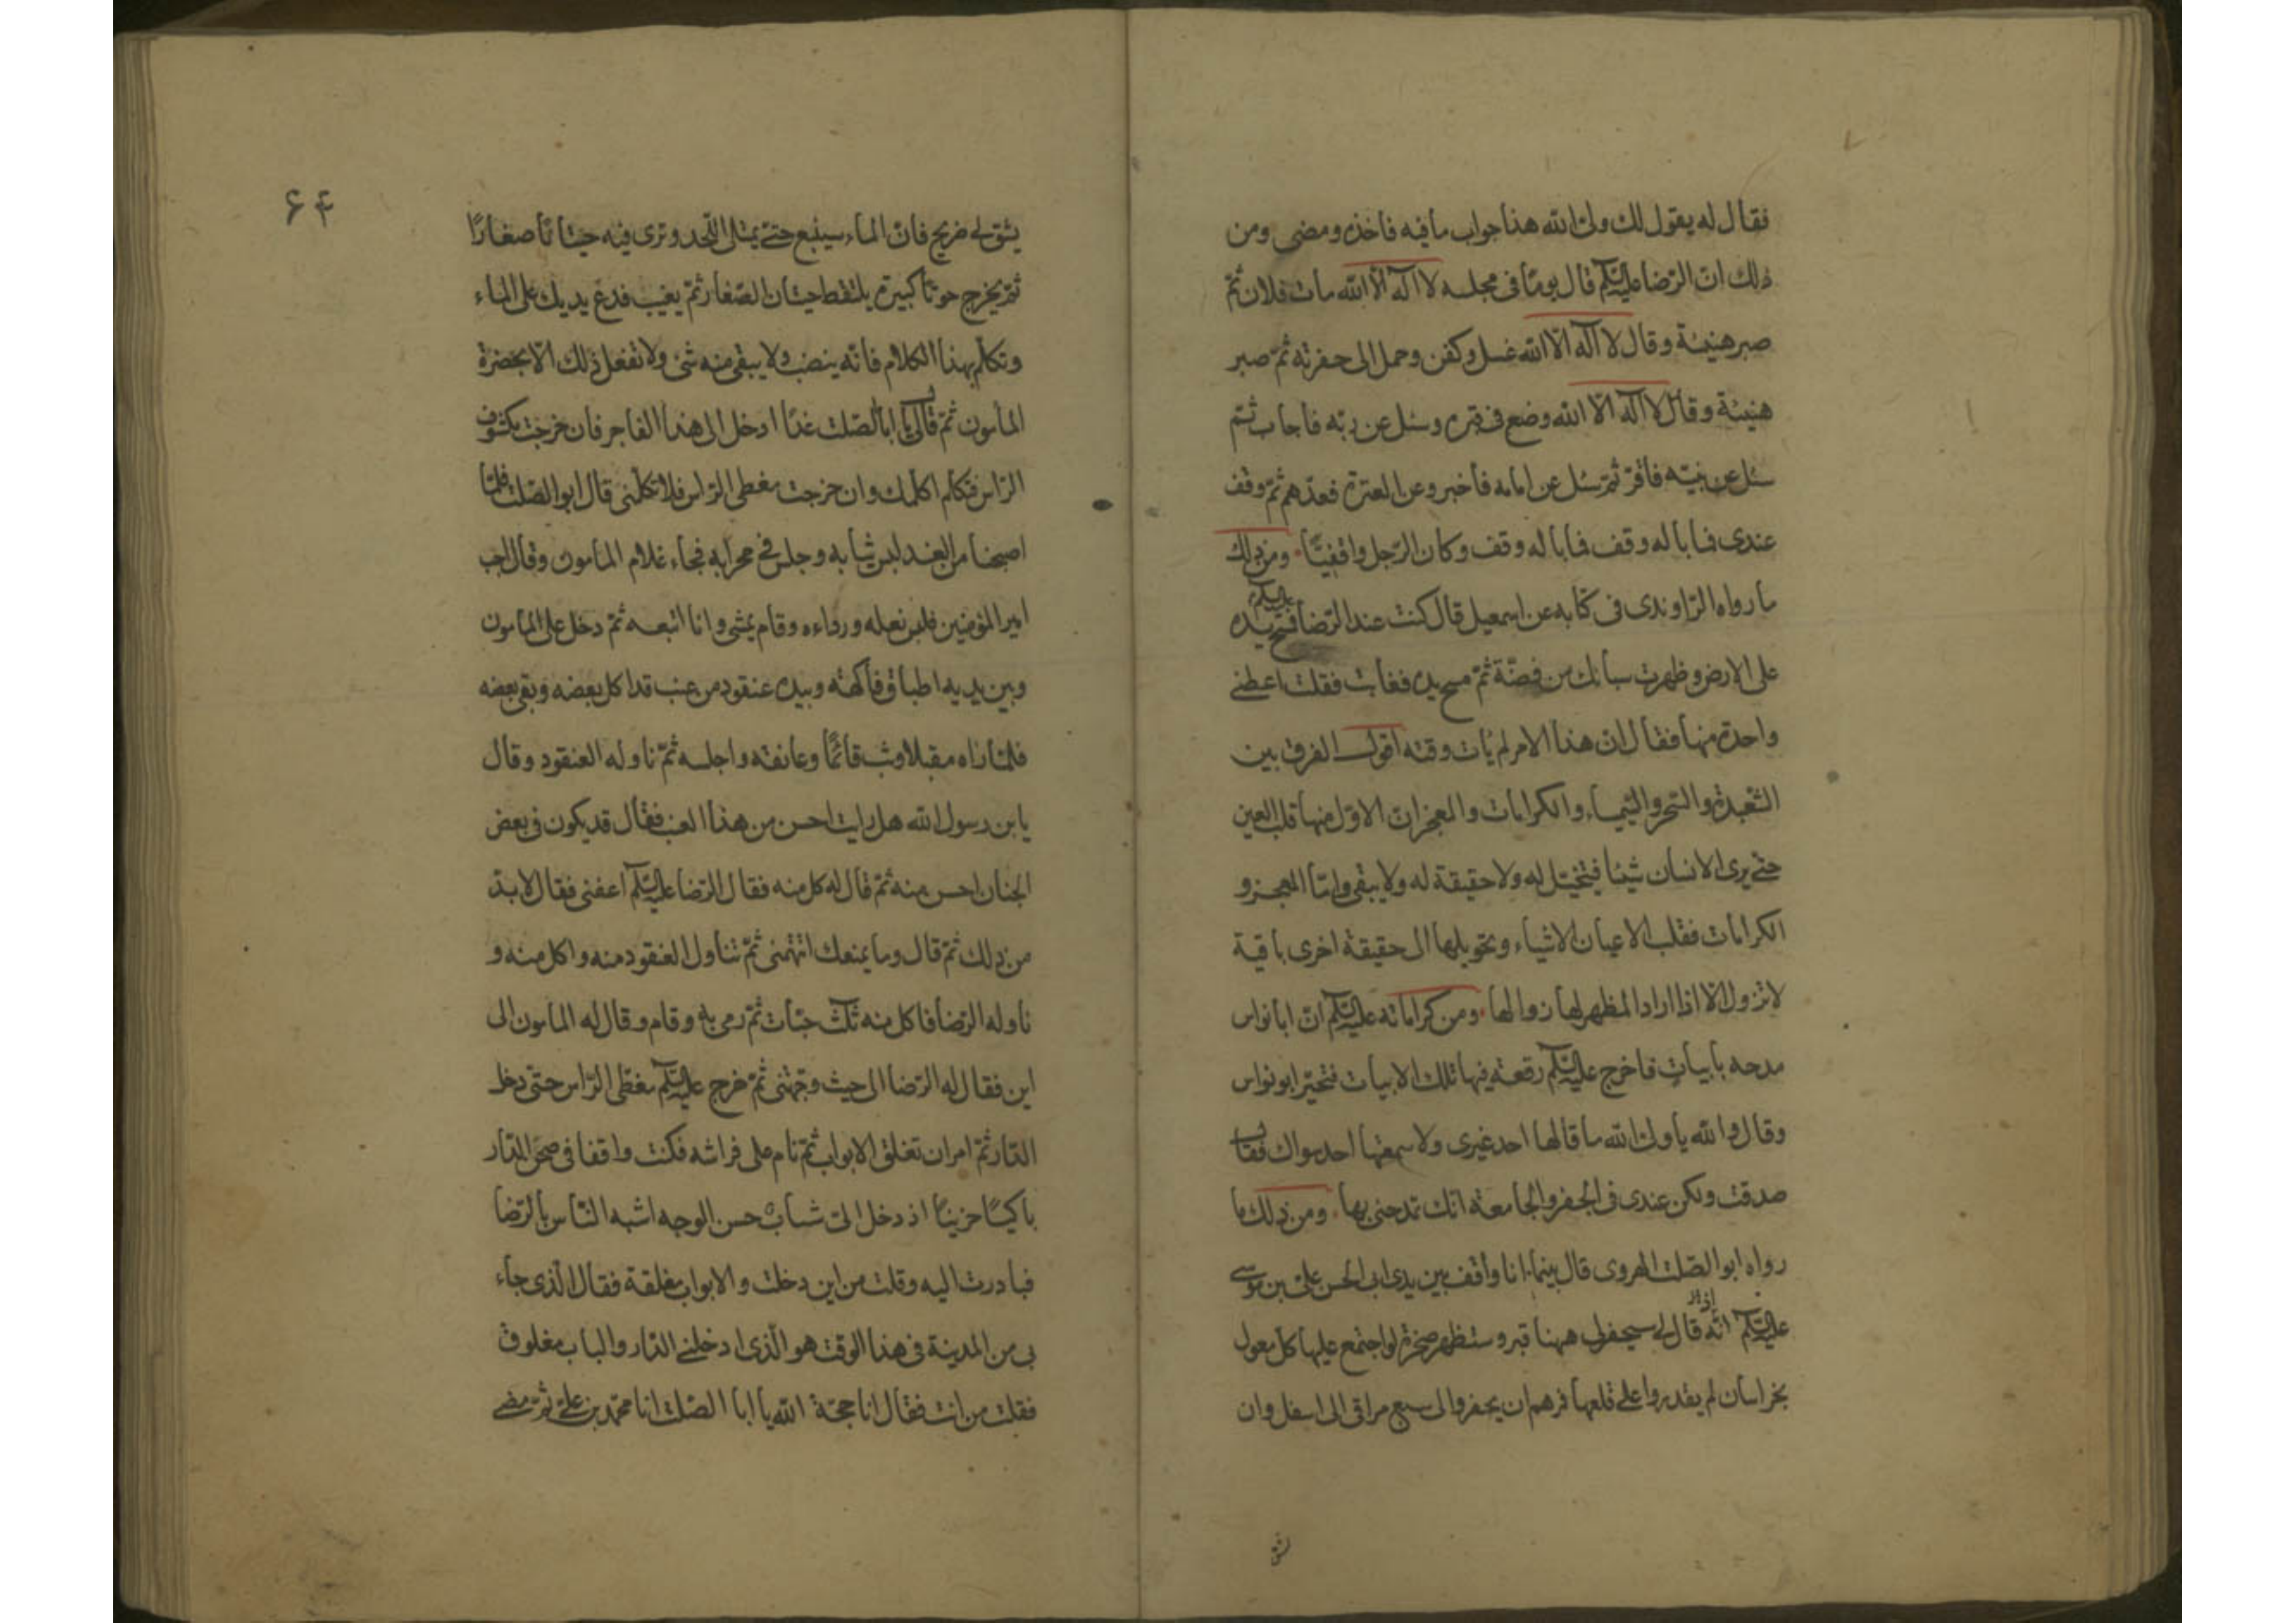 فقال له يقول لك ولى الله هذا جواب ما فيه فاخذه ومضى ومن
ذلك انّ الرّضا عليه السّلم قال يومًا فى مجلسه لا اله الّا الله مات فلان ثمّ
صبر هنيئة وقال لا اله الّا الله غسل وكفن وحمل الى حفرته ثمّ صبر
هنيئة وقال لا اله الّا الله وضع فى قبره وسئل عن ربّه فاجاب ثمّ
سئل عن نبيّه فاقرّ ثمّ سئل عن امامه فاخبر وعن العترة فعدّهم ثمّ وقف
عندى فما باله وقف فما باله وقف وكان الرّجل واقفيّا ومن ذلك
ما رواه الرّاوندى فى كتابه عن اسمعيل قال كنت عند الرّضا عليه السلم فمسح يده
على الارض وظهرت سبائك من فضّة ثمّ مسح يده فغابت فقلت اعطنى
واحدة منها فقال انّ هذا الامر لم يات وقته اقول الفرق بين
الشّعبدة والسّحر والسّيمياء والكرامات والمعجزات الاوّل منها قلب العين
حتّى يرى الانسان شيئا فيتخيّل له ولا حقيقة له ولا يبقى وامّا المعجز و
الكرامات فقلب الاعيان الاشياء وتحويلها الى حقيقة اخرى باقية
لا تزول الّا اذا اراد المظهر لها زوالها ومن كراماته عليه السّلم انّ ابا نواس
مدحه بابيات فاخرج عليه السّلم رقعة فيها تلك الابيات فتحيّر ابو نواس
وقال والله يا ولىّ الله ما قالها احد غيرى ولا سمعها احد سواك فقال
صدقت ولكن عندى فى الجفر والجامعة انّك تمدحنى بها ومن ذلك ما
رواه ابو الصّلت الهروى قال بينما انا واقف بين يدى ابى الحسن علىّ بن موسى
عليه السّلم اذ انّه قال لى سيحفر لى ههنا قبر وستظهر صخرة لو اجتمع عليها كلّ معول
بخراسان لم يقدروا على قلعها فمرهم ان يحفروا لى سبع مراقى الى اسفل وان
يشق
۶۴
يشق لى ضريح فانّ الماء سينبع حتّى يمتلى اللّحد وترى فيه حيتانًا صغارًا
ثمّ يخرج حوتًا كبيرة يلتقط حيتان الصّغار ثمّ يغيب فدع يديك على الماء
وتكلّم بهذا الكلام فانّه ينضب ولا يبقى منه شئ ولا تفعل ذلك الّا بحضرة
المأمون ثمّ قال لى يا ابا الصّلت غدًا ادخل الى هذا الفاجر فان خرجت مكشوف
الرّاس فتكلّم اكلّمك وان خرجت مغطى الرّاس فلا تكلّمنى قال ابو الصّلت فلمّا
اصبحنا من الغد لبس ثيابه وجلس فى محرابه فجاء غلام المأمون وقال اجب
امير المؤمنين فلبس نعله ورداءه وقام يمشى وانا اتبعه ثمّ دخل على المأمون
وبين يديه اطباق فاكهة وبيده عنقود من عنب قد اكل بعضه وبقى بعضه
فلمّا راه مقبلا وثب قائمًا وعانقه واجلسه ثمّ ناوله العنقود وقال
يابن رسول الله هل رايت احسن من هذا العنب فقال قد يكون فى بعض
الجنان احسن منه ثمّ قال له كل منه فقال الرّضا عليه السّلم اعفنى فقال لا بدّ
من ذلك ثمّ قال وما يمنعك اتتّهمنى ثمّ تناول العنقود منه واكل منه و
ناوله الرّضا فاكل منه ثلث حبّات ثمّ رمى به وقام وقال له المأمون الى
اين فقال له الرّضا الى حيث وجّهتنى ثمّ خرج عليه السّلم مغطّى الرّاس حتّى دخل
الدّار ثمّ امر ان تغلق الابواب ثمّ نام على فراشه فكنت واقفا فى صحن الدّار
باكيًا حزينًا اذ دخل الىّ شابّ حسن الوجه اشبه النّاس بالرّضا
فبادرت اليه وقلت من اين دخلت والابواب مغلقة فقال الّذى جاء
بى من المدينة فى هذا الوقت هو الّذى ادخلنى الدّار والباب مغلوق
فقلت من انت فقال انا حجّة الله يا ابا الصّلت انا محمّد بن علىّ ثمّ مضى